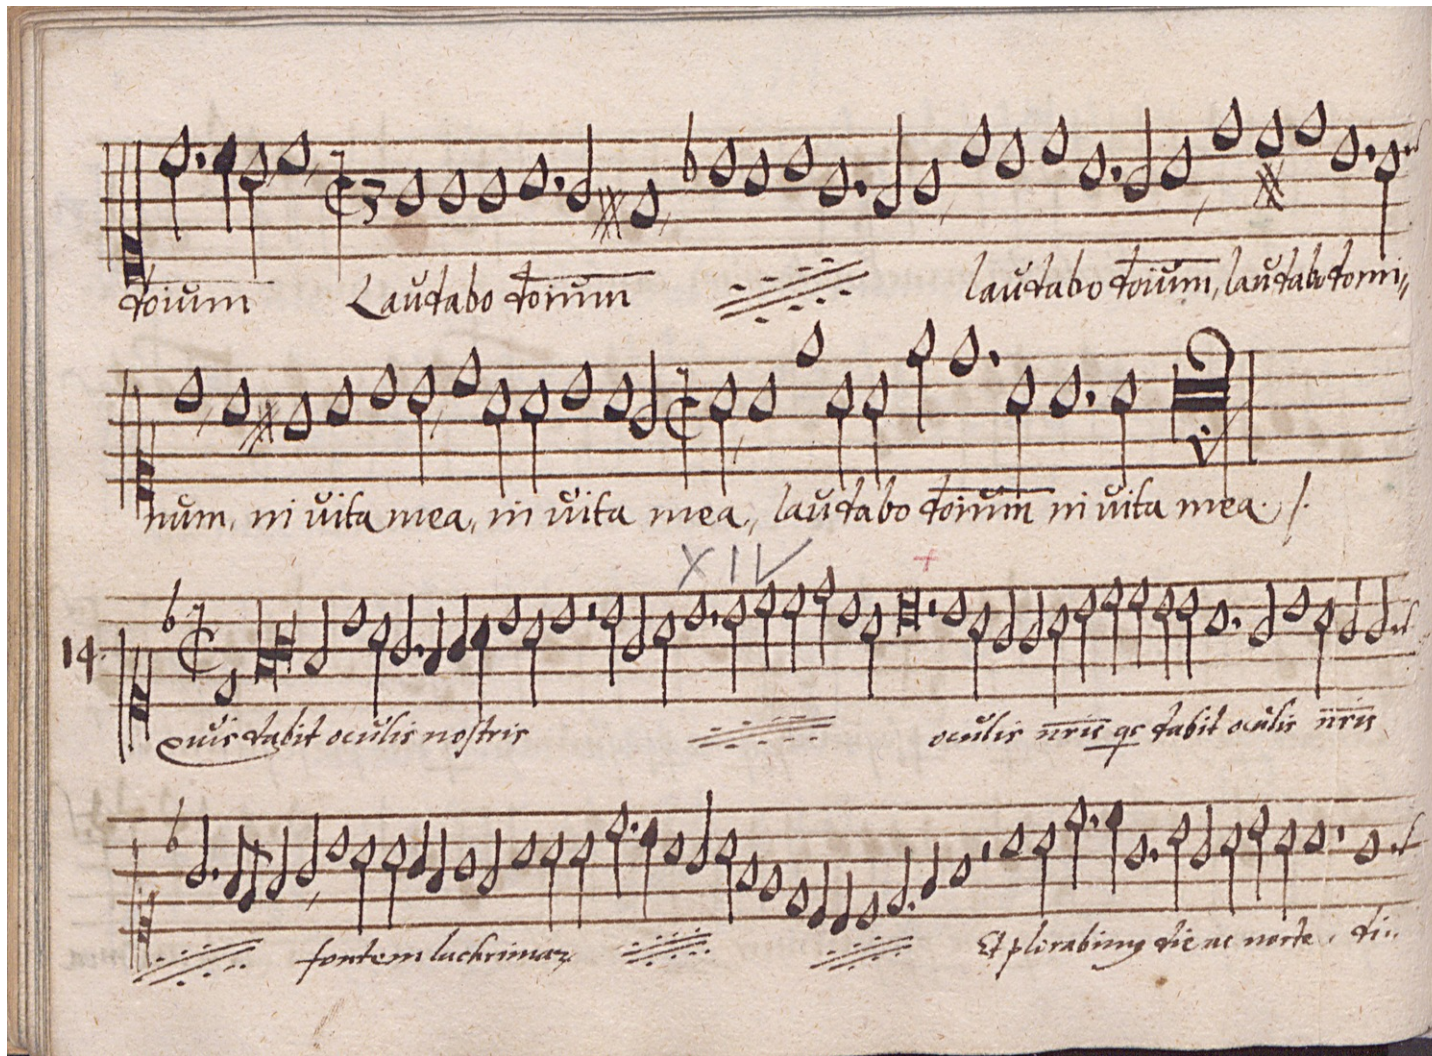 doium Laudabo doium laudabo doium, laudabo domi„
num, in vita mea, in vita mea, laudabo doium in vita mea. /.
XIV +
14.
Quis dabit oculis nostris oculis nris qs dabit oculis nris
fontem lachrimaz Et plorabimus die ac nocte, di..